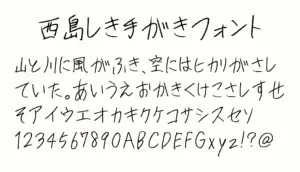 西島しき手がきフォント
山と川に風がふき、空にはヒカリがさし
ていた。あいうえおかきくけこさしすせ
そアイウエオカキクケコサシスセソ
1234567890ABCDEFGxyz!?@